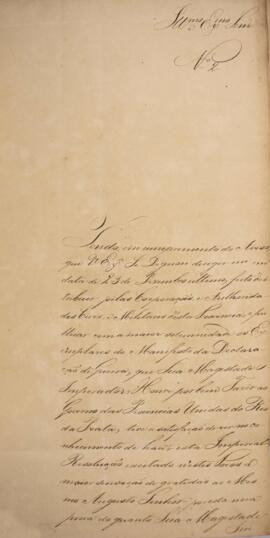 Illmo. e Exmo. Senr.
No. 2
Tendo, em cumprimento do Aviso,
que V. Exa. Se Dignou dirigir me em
data de 23 de Dezembro ultimo, feito dis-
tribuir pelas Corporações, e Authorida-
des Civis, e Militares desta Provincia, e pu-
blicar com a maior solemnidade os Ex-
emplares do Manifesto da Declara-
ção de Guerra, que Sua Magestade o
Imperador Houve por bem Fazer ao
Governo das Provincias Unidas do Rio
da Prata; tive a satisfação de ver no co-
nhecimento de haver esta Imperial
Resolução excitado nestes Povos a
maior sensação de gratidão ao Mes-
mo Augusto Senhor, sendo uma
prova do quanto Sua Magestade